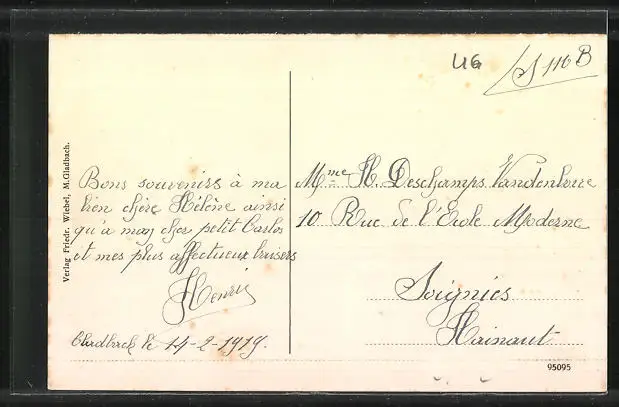 UG
S 116 B
Verlag Friedr. Wiebel, M.Gladbach.
Bons souvenirs à ma
bien chère Hélène ainsi
qu'à mon cher petit Carlos
et mes plus affectueux baisers
Henri
Gladbach le 14-2-1919.
Mme H. Deschamps Vandenhove
10 Rue de l'École Moderne
Soignies
Hainaut
95095